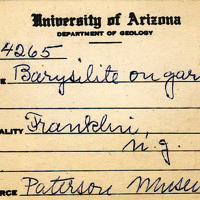 University of Arizona
DEPARTMENT OF GEOLOGY
4265
E Barysilite on gar
ALITY Franklin,
N.J.
RCE Paterson Museu